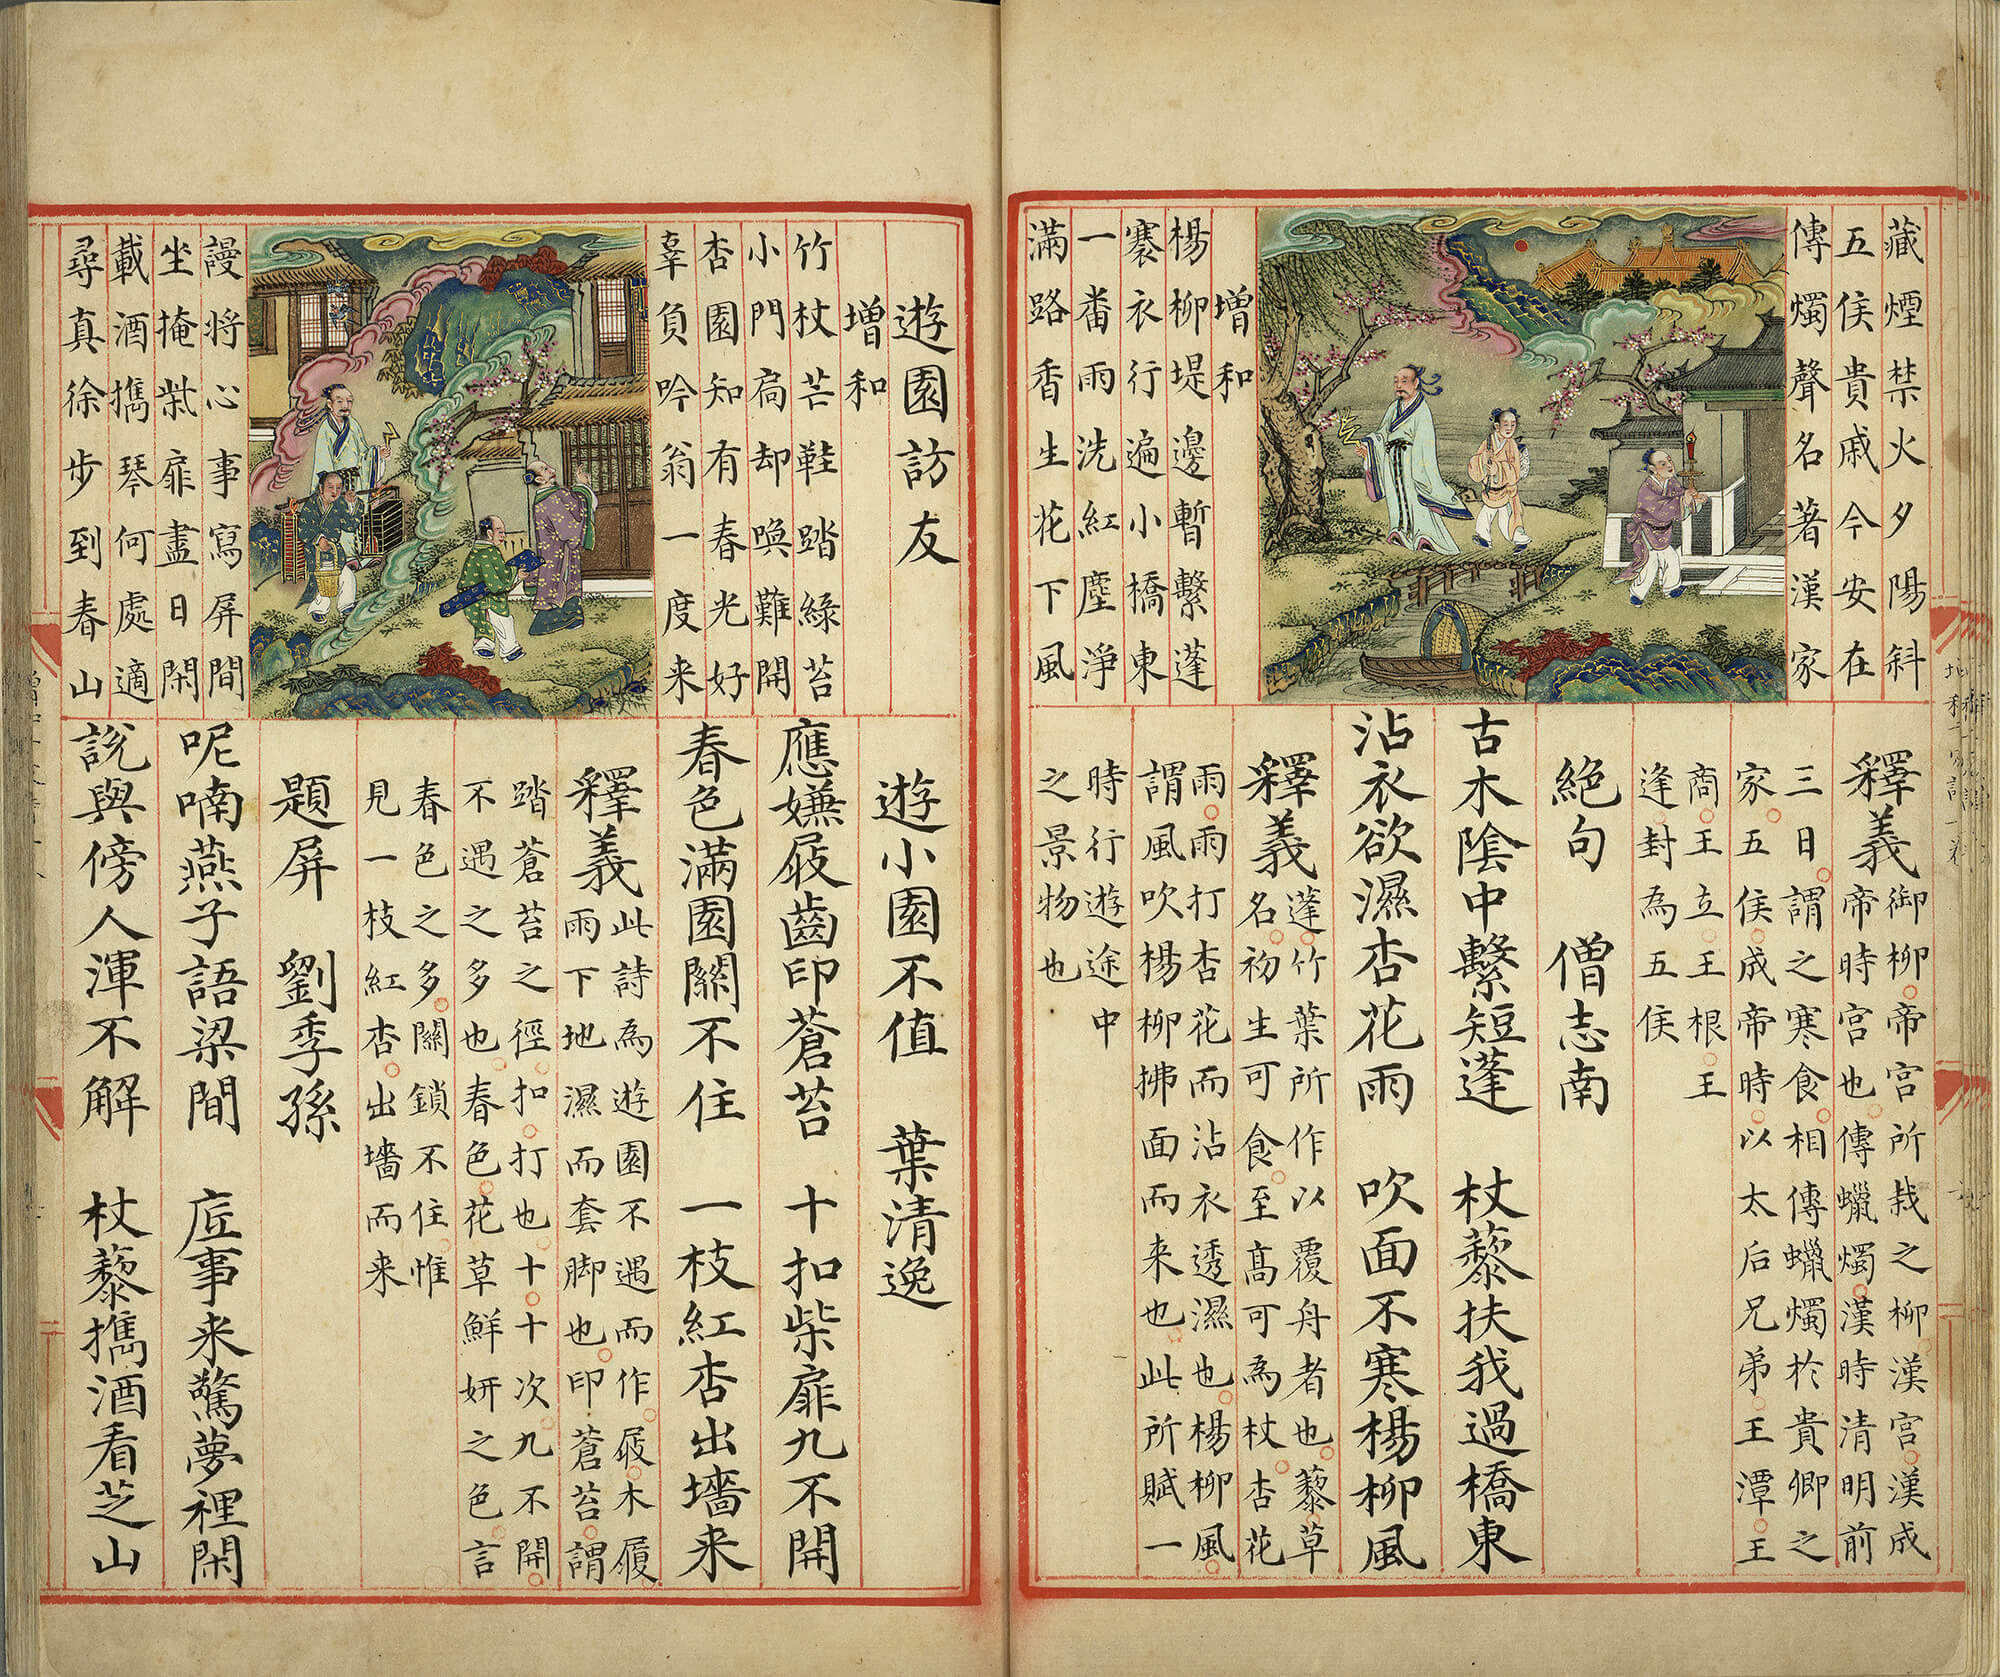 藏煙禁火夕陽斜
五侯貴戚今安在
傳燭聲名著漢家
增和
楊柳堤邊暫繫蓬
褰衣行遍小橋東
一番雨洗紅塵淨
滿路香生花下風
釋義
御柳帝宮所栽之柳漢宮漢成
帝時宮也傳蠟燭漢時清明前
三日謂之寒食相傳蠟燭於貴卿之
家五侯成帝時以太后兄弟王潭王
商王立王根王
逢封為五侯
絕句 僧志南
古木陰中繫短蓬 杖藜扶我過橋東
沾衣欲濕杏花雨 吹面不寒楊柳風
釋義
蓬竹葉所作以覆舟者也藜草
名初生可食至高可為杖杏花
雨雨打杏花而沾衣透濕也楊柳風
謂風吹楊柳拂面而来也此所賦一
時行遊途中
之景物也
遊園訪友
增和
竹杖芒鞋踏綠苔
小門扃却喚難開
杏園知有春光好
辜負吟翁一度来
謾将心事寫屏間
坐掩柴扉盡日閑
載酒攜琴何處適
尋真徐步到春山
遊小園不值 葉清逸
應嫌屐齒印蒼苔 十扣柴扉九不開
春色滿園關不住 一枝紅杏出墻来
釋義
此詩為遊園不遇而作屐木履
雨下地濕而套脚也印蒼苔謂
踏蒼苔之徑扣打也十十次九不開
不遇之多也春色花草鮮妍之色言
春色之多關鎖不住惟
見一枝紅杏出墻而来
題屏 劉季孫
呢喃燕子語梁間 底事来驚夢裡閑
說與傍人渾不解 杖藜攜酒看芝山